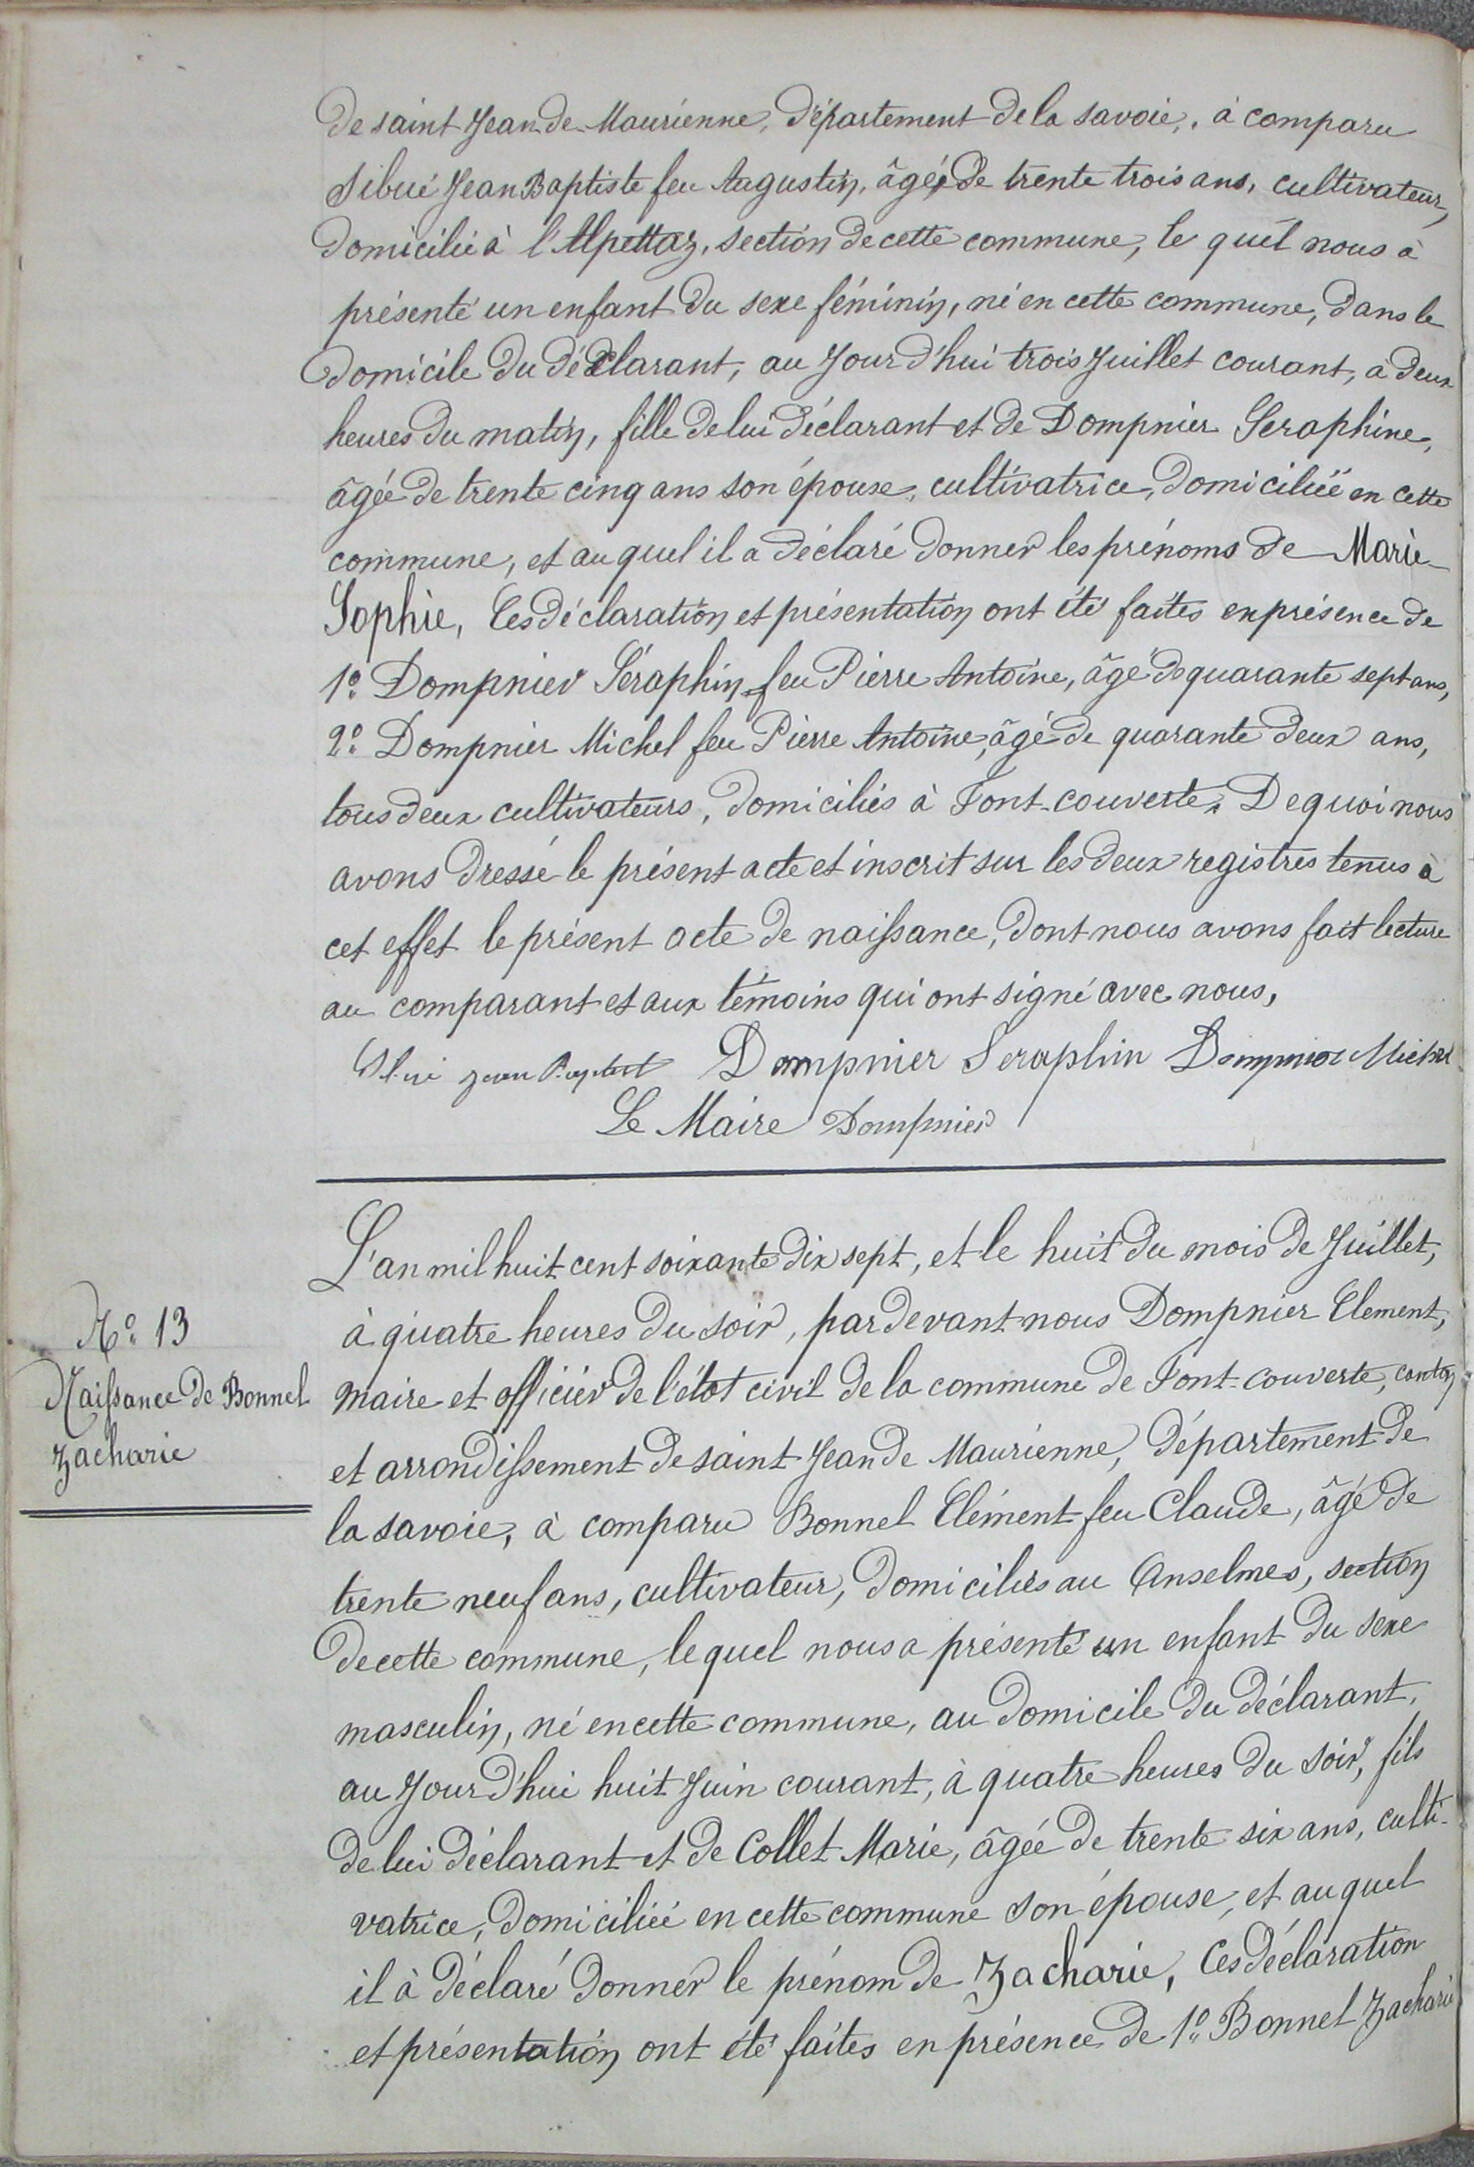 de saint Jean de Maurienne, département de la savoie, à comparu
Sibué Jean Baptiste feu Augustin, âgée de trente trois ans, cultivateur,
domicilié à l'Alpettaz, section de cette commune, le quel nous à
présenté un enfant du sexe féminin, né en cette commune, dans le
domicile du déclarant, au Jour d'hui trois Juillet courant, à deux
heures du matin, fille de lui déclarant et de Dompnier Seraphine,
âgée de trente cinq ans son épouse, cultivatrice, domiciliée en cette
commune, et au quel il a déclaré donner les prénoms de Marie
Sophie, Ces déclaration et présentation ont été faites en présence de
1° Dompnier Séraphin feu Pierre Antoine, âgé de quarante sept ans,
2° Dompnier Michel feu Pierre Antoine, âgé de quarante deux ans,
tous deux cultivateurs, domiciliés à Font-couverte, De quoi nous
avons dressé le présent acte et inscrit sur les deux registres tenus à
cet effet le présent acte de naissance, dont nous avons fait lecture
au comparant et aux témoins qui ont signé avec nous,
Sibué jean Baptist Dompnier Seraphin Dompnier Michel
Le Maire Dompnier
N° 13
Naissance de Bonnel
Zacharie
L'an mil huit cent soixante dix sept, et le huit du mois de Juillet,
à quatre heures du soir, par devant nous Dompnier Element,
maire et officier de l'état civil de la commune de Font-couverte, canton
et arrondissement de saint Jean de Maurienne, département de
la savoie, à comparu Bonnel Elément feu Claude, âgé de
trente neuf ans, cultivateur, domiciliés au Anselmes, section
de cette commune, le quel nous a présenté un enfant du sexe
masculin, né en cette commune, au domicile du déclarant,
au Jour d'hui huit Juin courant, à quatre heures du soir, fils
de lui déclarant et de Collet Marie, âgée de trente six ans, culti-
vatrice, domiciliée en cette commune son épouse, et au quel
il à déclaré donner le prénom de Zacharie, Ces déclaration
et présentation ont été faites en présence de 1° Bonnel Zacharie